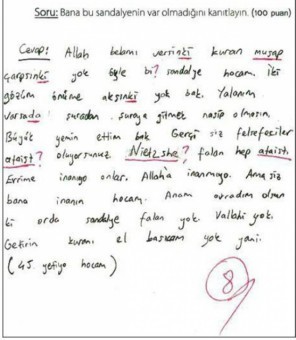 Soru: Bana bu sandalyenin var olmadığını kanıtlayın. (100 puan)
Cevap: Allah belamı versinki kuran muşap
çarpsınki yok öyle bi? sandalye hocam. iki
gözüm önüme aksınki yok bak. Yalanım
varsada suradan suraya gitmek nasip olmasın.
Büyük yemin ettim bak. Gerçi siz felsefeciler
ataist? oluyorsunuz. Nietzshe? falan hep ataist.
Evrime inanıyo onlar. Allah'a inanmıyo. Ama siz
bana inanın hocam. Anam avradım olsun
ki orda sandalye falan yok. Vallahi yok.
Getirin kuranı el basıcam yok yani.
(45 yetiyo hocam)
8